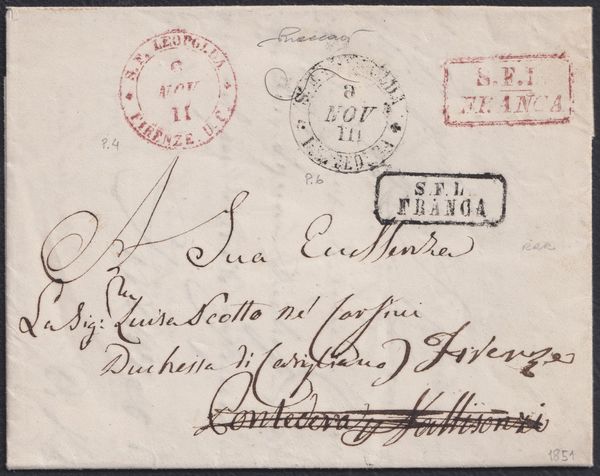 S. F. LEOPOLDA
8
NOV
II
FIRENZE U. C.
P.4
9
NOV
III
P.6
S.F.L.
FRANCA
S.F.L.
FRANCA
RRR
A Sua Eccellenza
La Sig:ra Luisa Scotto né Corsini
Duchessa di Casigliano) Firenze
Pontedera
1851